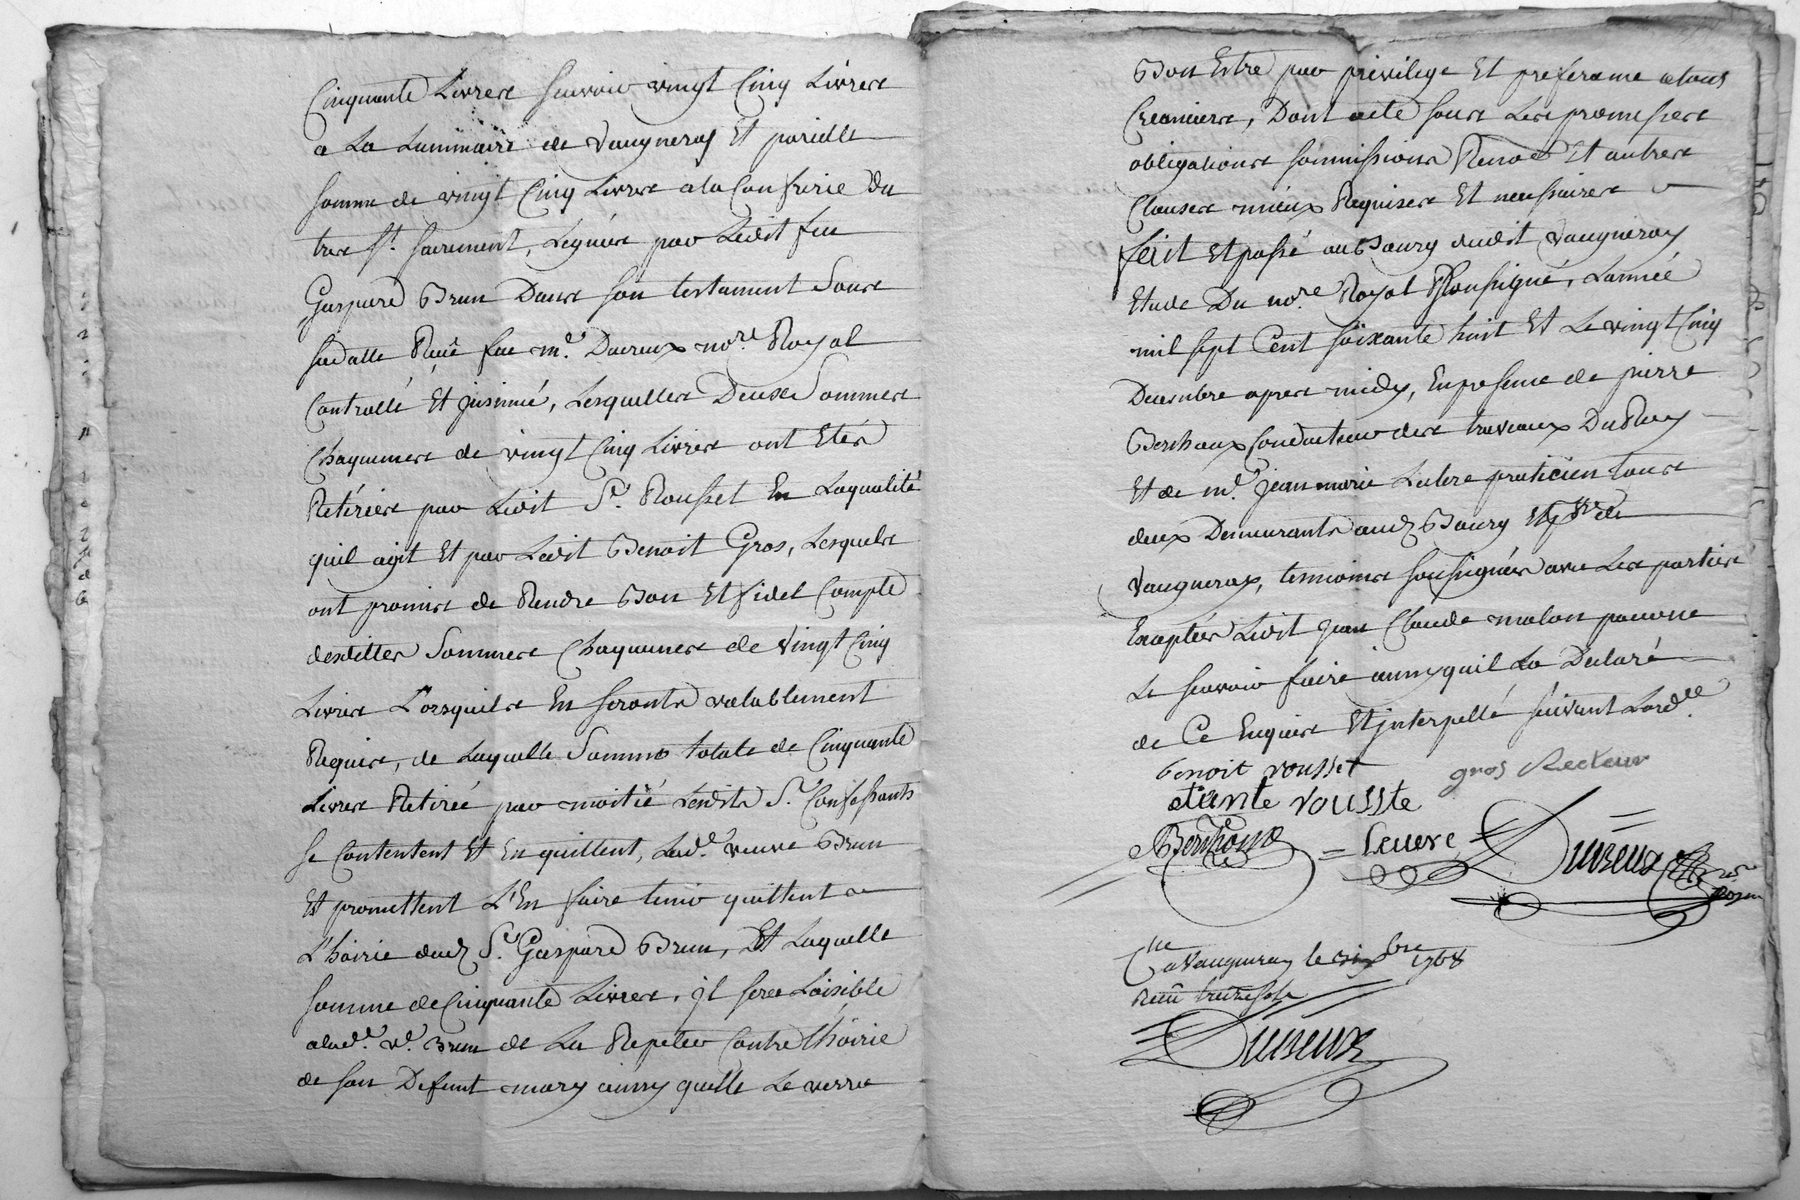 Cinquante Livres scavoir vingt Cinq Livres
a La Luminaire de Vaugneray Et pareille
somme de vingt Cinq Livres a la Confrerie du
tres St. sacrement, Leguées par Ledit feu
Gaspard Brun Dans son testament Sous
sa datte Receu feu me. Ducreux nore. Royal
Controllé Et jnsinué, Lesquelles Deux Sommes
Chaqunes de vingt Cinq Livres ont Etés
Retirées par Ledit Sr. Rousset En Laqualité
quil agit Et par Ledit Benoit Gros, Lesquels
ont promis de Rendre Bon Et fidel Compte
desdittes Sommes Chaqunes de Vingt Cinq
Livres L'orsquils En seronts valablement
Requis, de Laquelle Somme totale de Cinquante
Livres Retirée par moitié Lesdits Srs. Confessants
se Contentent Et En quittent, Lade. veuve Brun
Et promettent L'En faire tenir quittent a
L'hoirie dudt. Sr. Gaspard Brun, Et Laquelle
somme de Cinquante Livres, jl sera Loisible
alade. ve. Brun de La Repeter Contre l'hoirie
de son Defunt mary ainsy quelle Le verra
Bon Estre par privilege Et preferance atous
Creanciers, Dont acte sous Les promesses
obligations soumissions Renons Et autres
Clauses mieux Requises Et necessaires
fait Et passé au Bourg dudit Vaugneray
Etude Du nore. Royal Soussigné, Lannée
mil sept Cent soixante huit Et Le vingt Cinq
Decembre apres midy, En presence de pierre
Berthaux Conducteur des travaux Du Roy
Et de me. jean marie Labre praticien tous
deux Demeurants audt Bourg Et psse de
Vaugneray, temoins soussignés avec Les parties
Exceptées Ledit jean Claude malon pour ne
Le scavoir faire ainsy quil La Declaré
de Ce Enquis Et jnterpellé suivant Lordce.
benoit rousset
gros Recteur
etiante rousste
Ducreux
Cle a Vaugneray le bre 1768
Receu treize sols
Ducreux